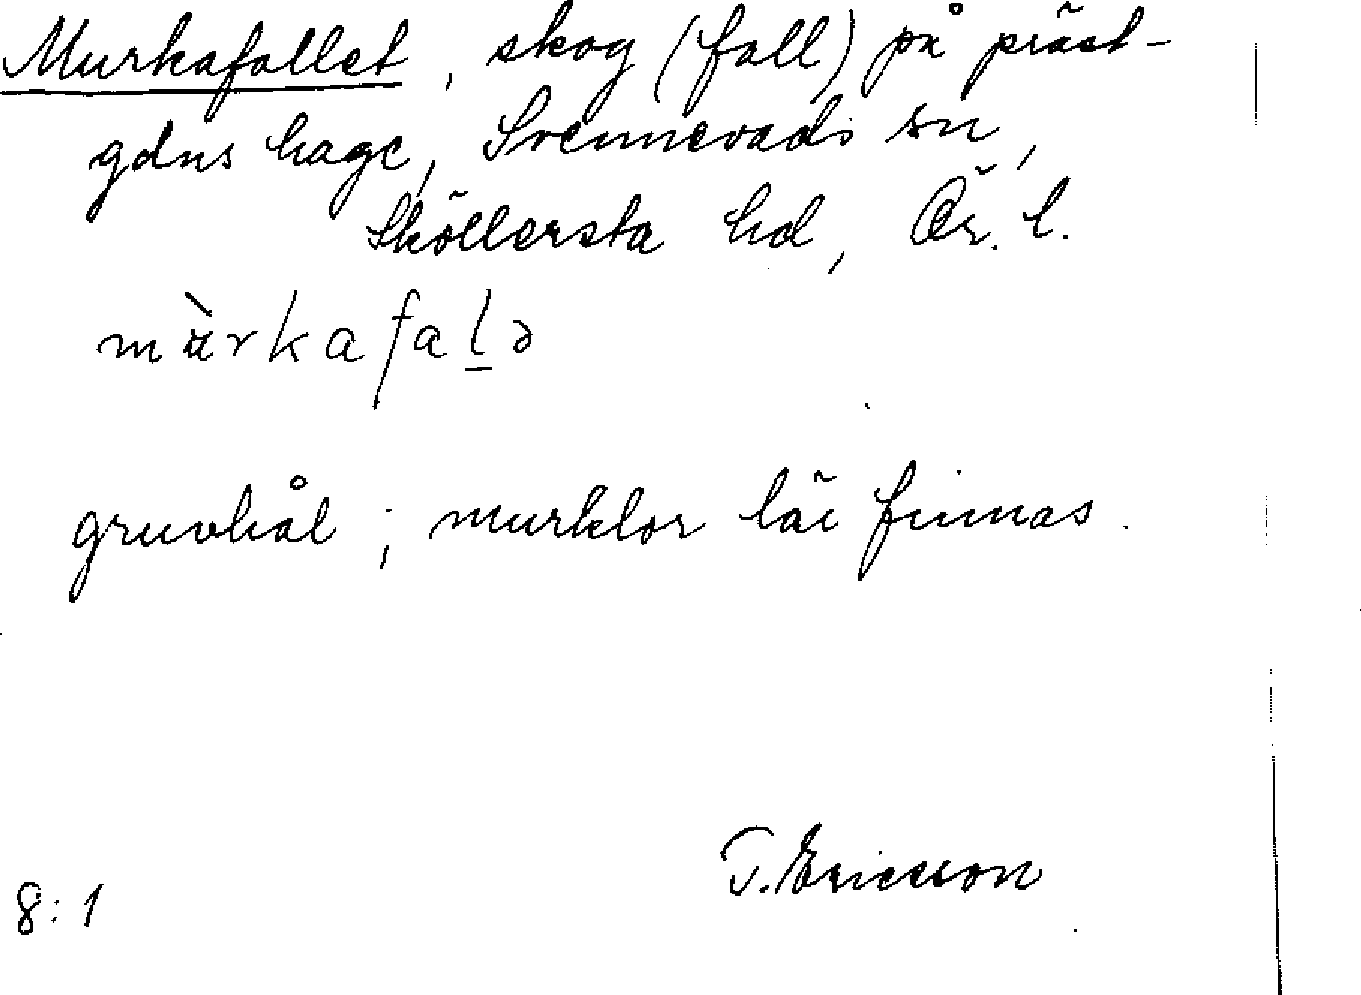 Murkafallet, skog (fall) på präst-
gdns hage, Svennevads sn,
Sköllersta hd, Ör. l.
mùrkafalə
gruvhål; murklor lär finnas.
T. Ericsson
8:1